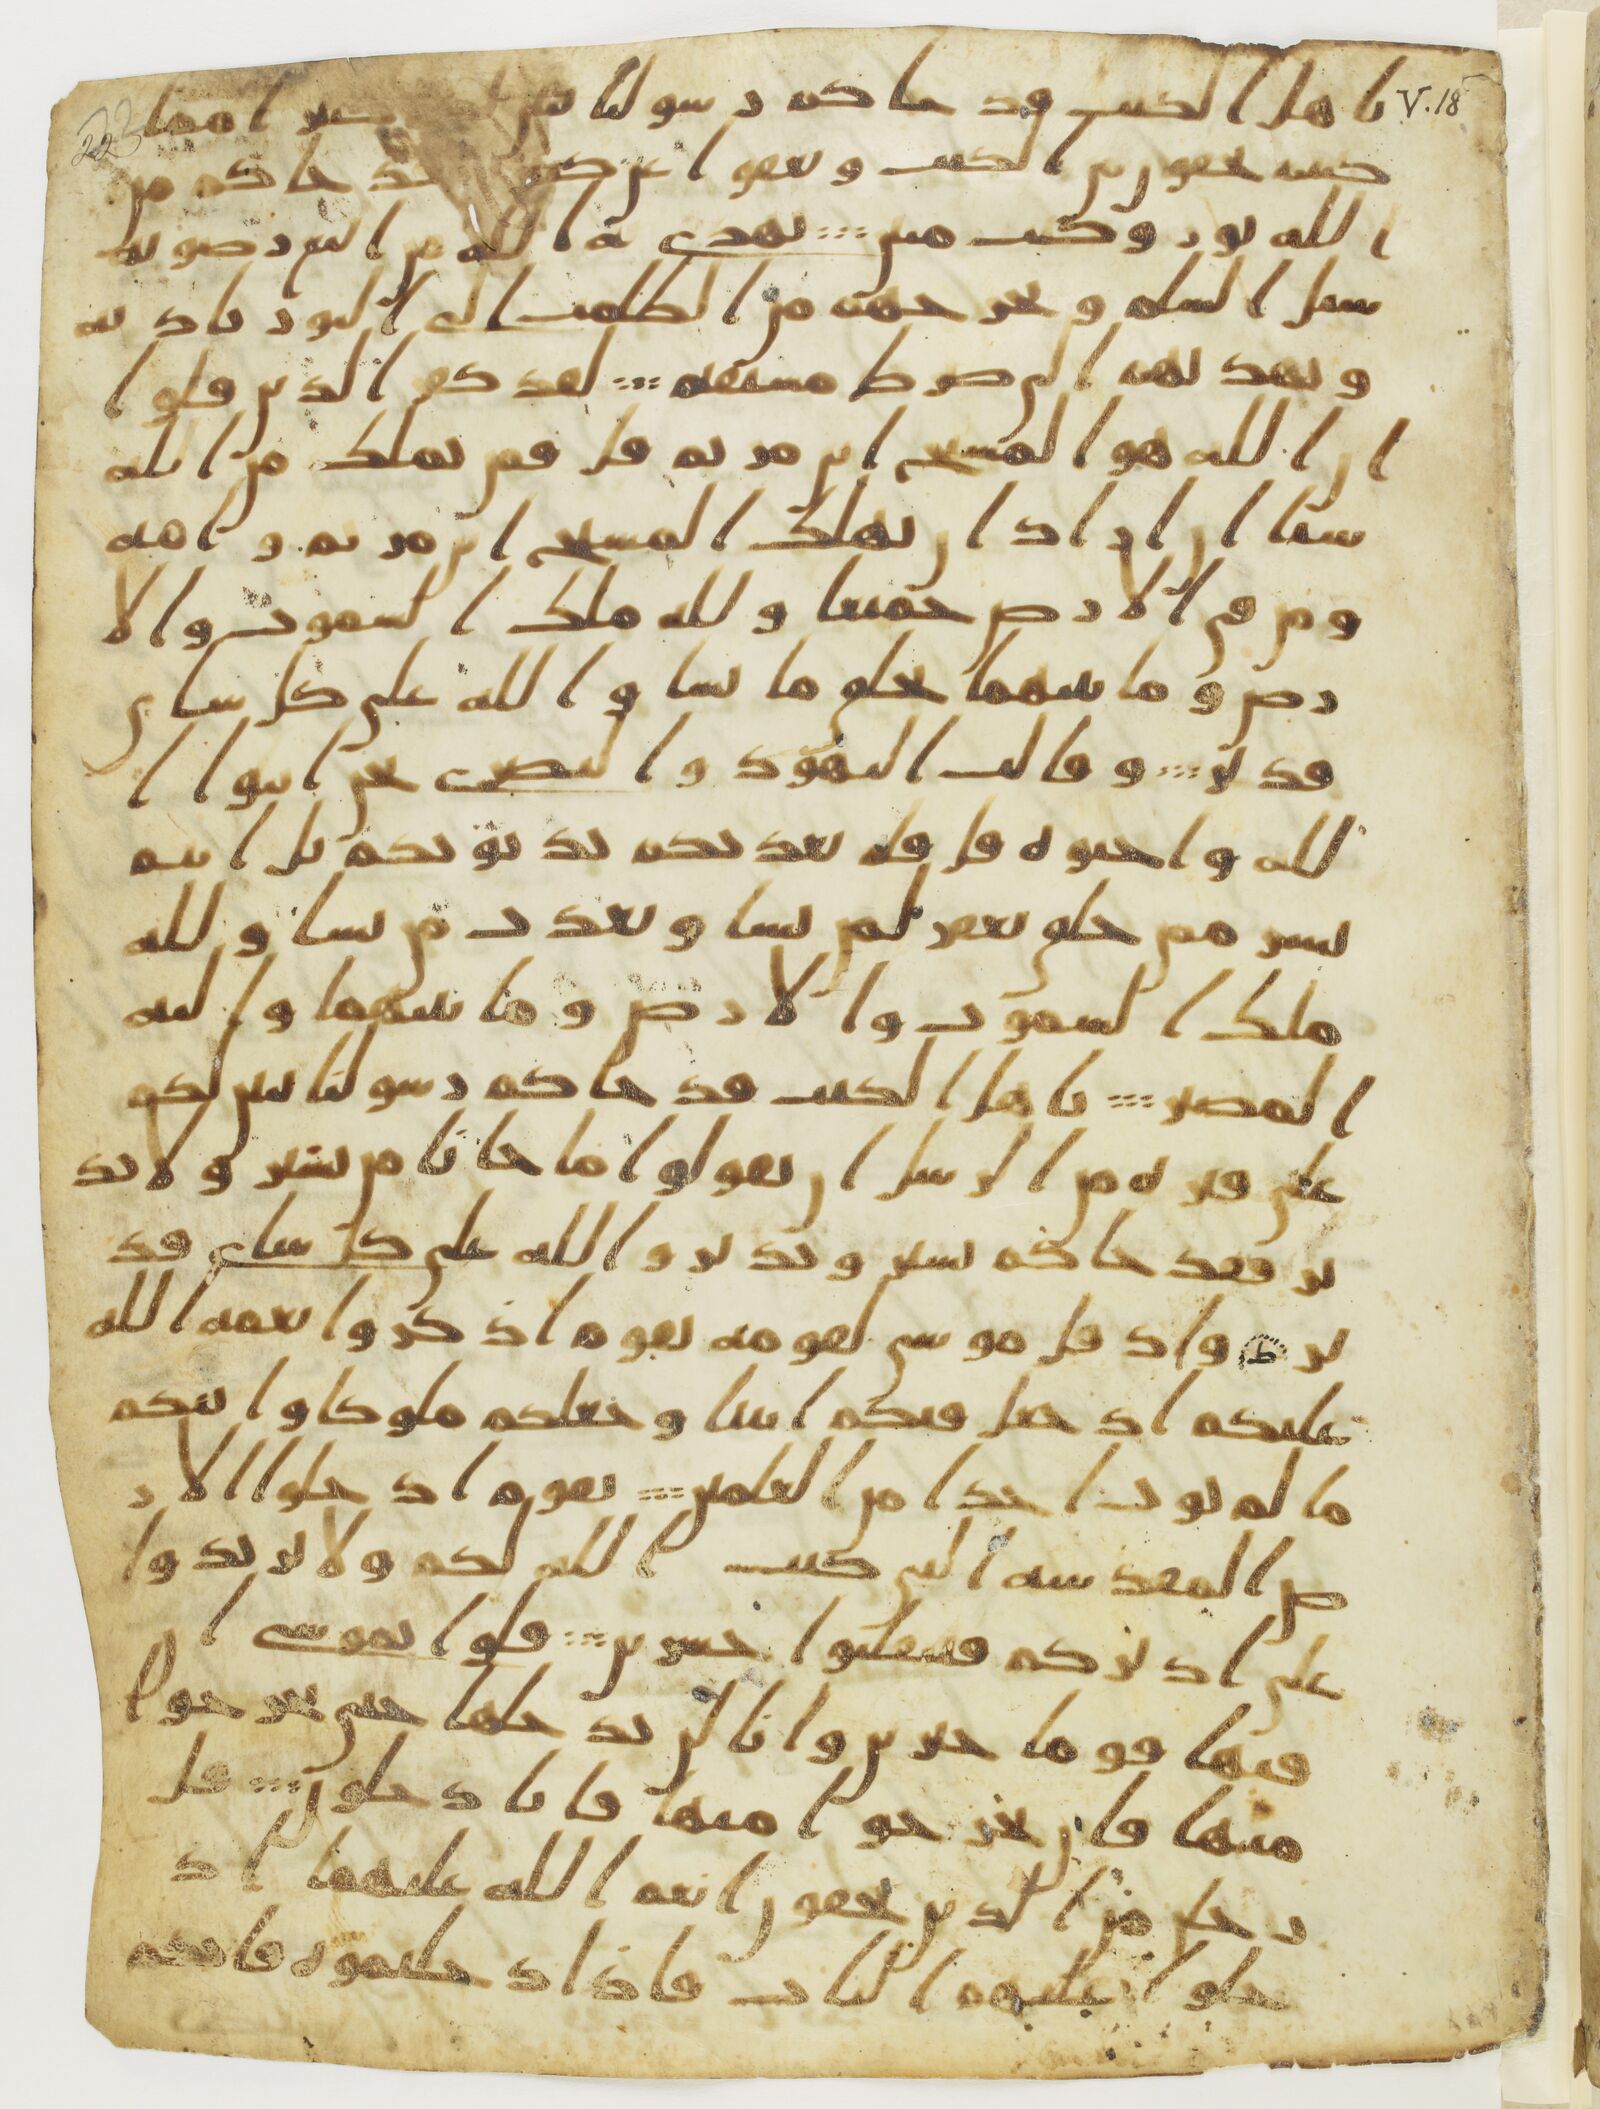 V.18
223
ياهل الكتب قد جاكم رسولنا يبين كثيرا مما
كنتم تخفون من الكتب ويعفوا عن كثير قد جاكم من
الله نور وكتب مبين يهدي به الله من اتبع رضونه
سبل السلم ويخرجهم من الظلمت الى النور باذنه
ويهديهم الى صرط مستقيم لقد كفر الذين قلوا
ان الله هو المسيح ابن مريم قل فمن يملك من الله
شيا ان اراد ان يهلك المسيح ابن مريم وامه
ومن في الارض جميعا ولله ملك السموت والا
رض وما بينهما يخلق ما يشا والله على كل شاي
قدير وقالت اليهود والنصرى نحن ابنوا ا
لله واحبوه قل فلم يعذبكم بذنوبكم بل انتم
بشر ممن خلق يغفر لمن يشا ويعذب من يشا ولله
ملك السموت والارض وما بينهما واليه
المصير ياهل الكتب قد جاكم رسولنا يبين لكم
على فتره من الرسل ان تقولوا ما جانا من بشير ولا نذ
ير فقد جاكم بشير ونذير والله على كل شاي قد
ير واذ قل موسى لقومه يقوم اذكروا نعمه الله
عليكم اذ جعل فيكم انبيا وجعلكم ملوكا واتيكم
ما لم يوت احدا من العلمين يقوم ادخلوا الار
ض المقدسه التي كتب الله لكم ولا ترتدوا
على ادبركم فتنقلبوا خسرين قلوا يموسى ان
فيها قوما جبرين وانا لن ندخلها حتى يخرجوا
منها فان يخرجوا منها فانا دخلون قل
رجلن من الذين يخفون انعم الله عليهما اد
خلوا عليهم الباب فاذا دخلتموه فانكم